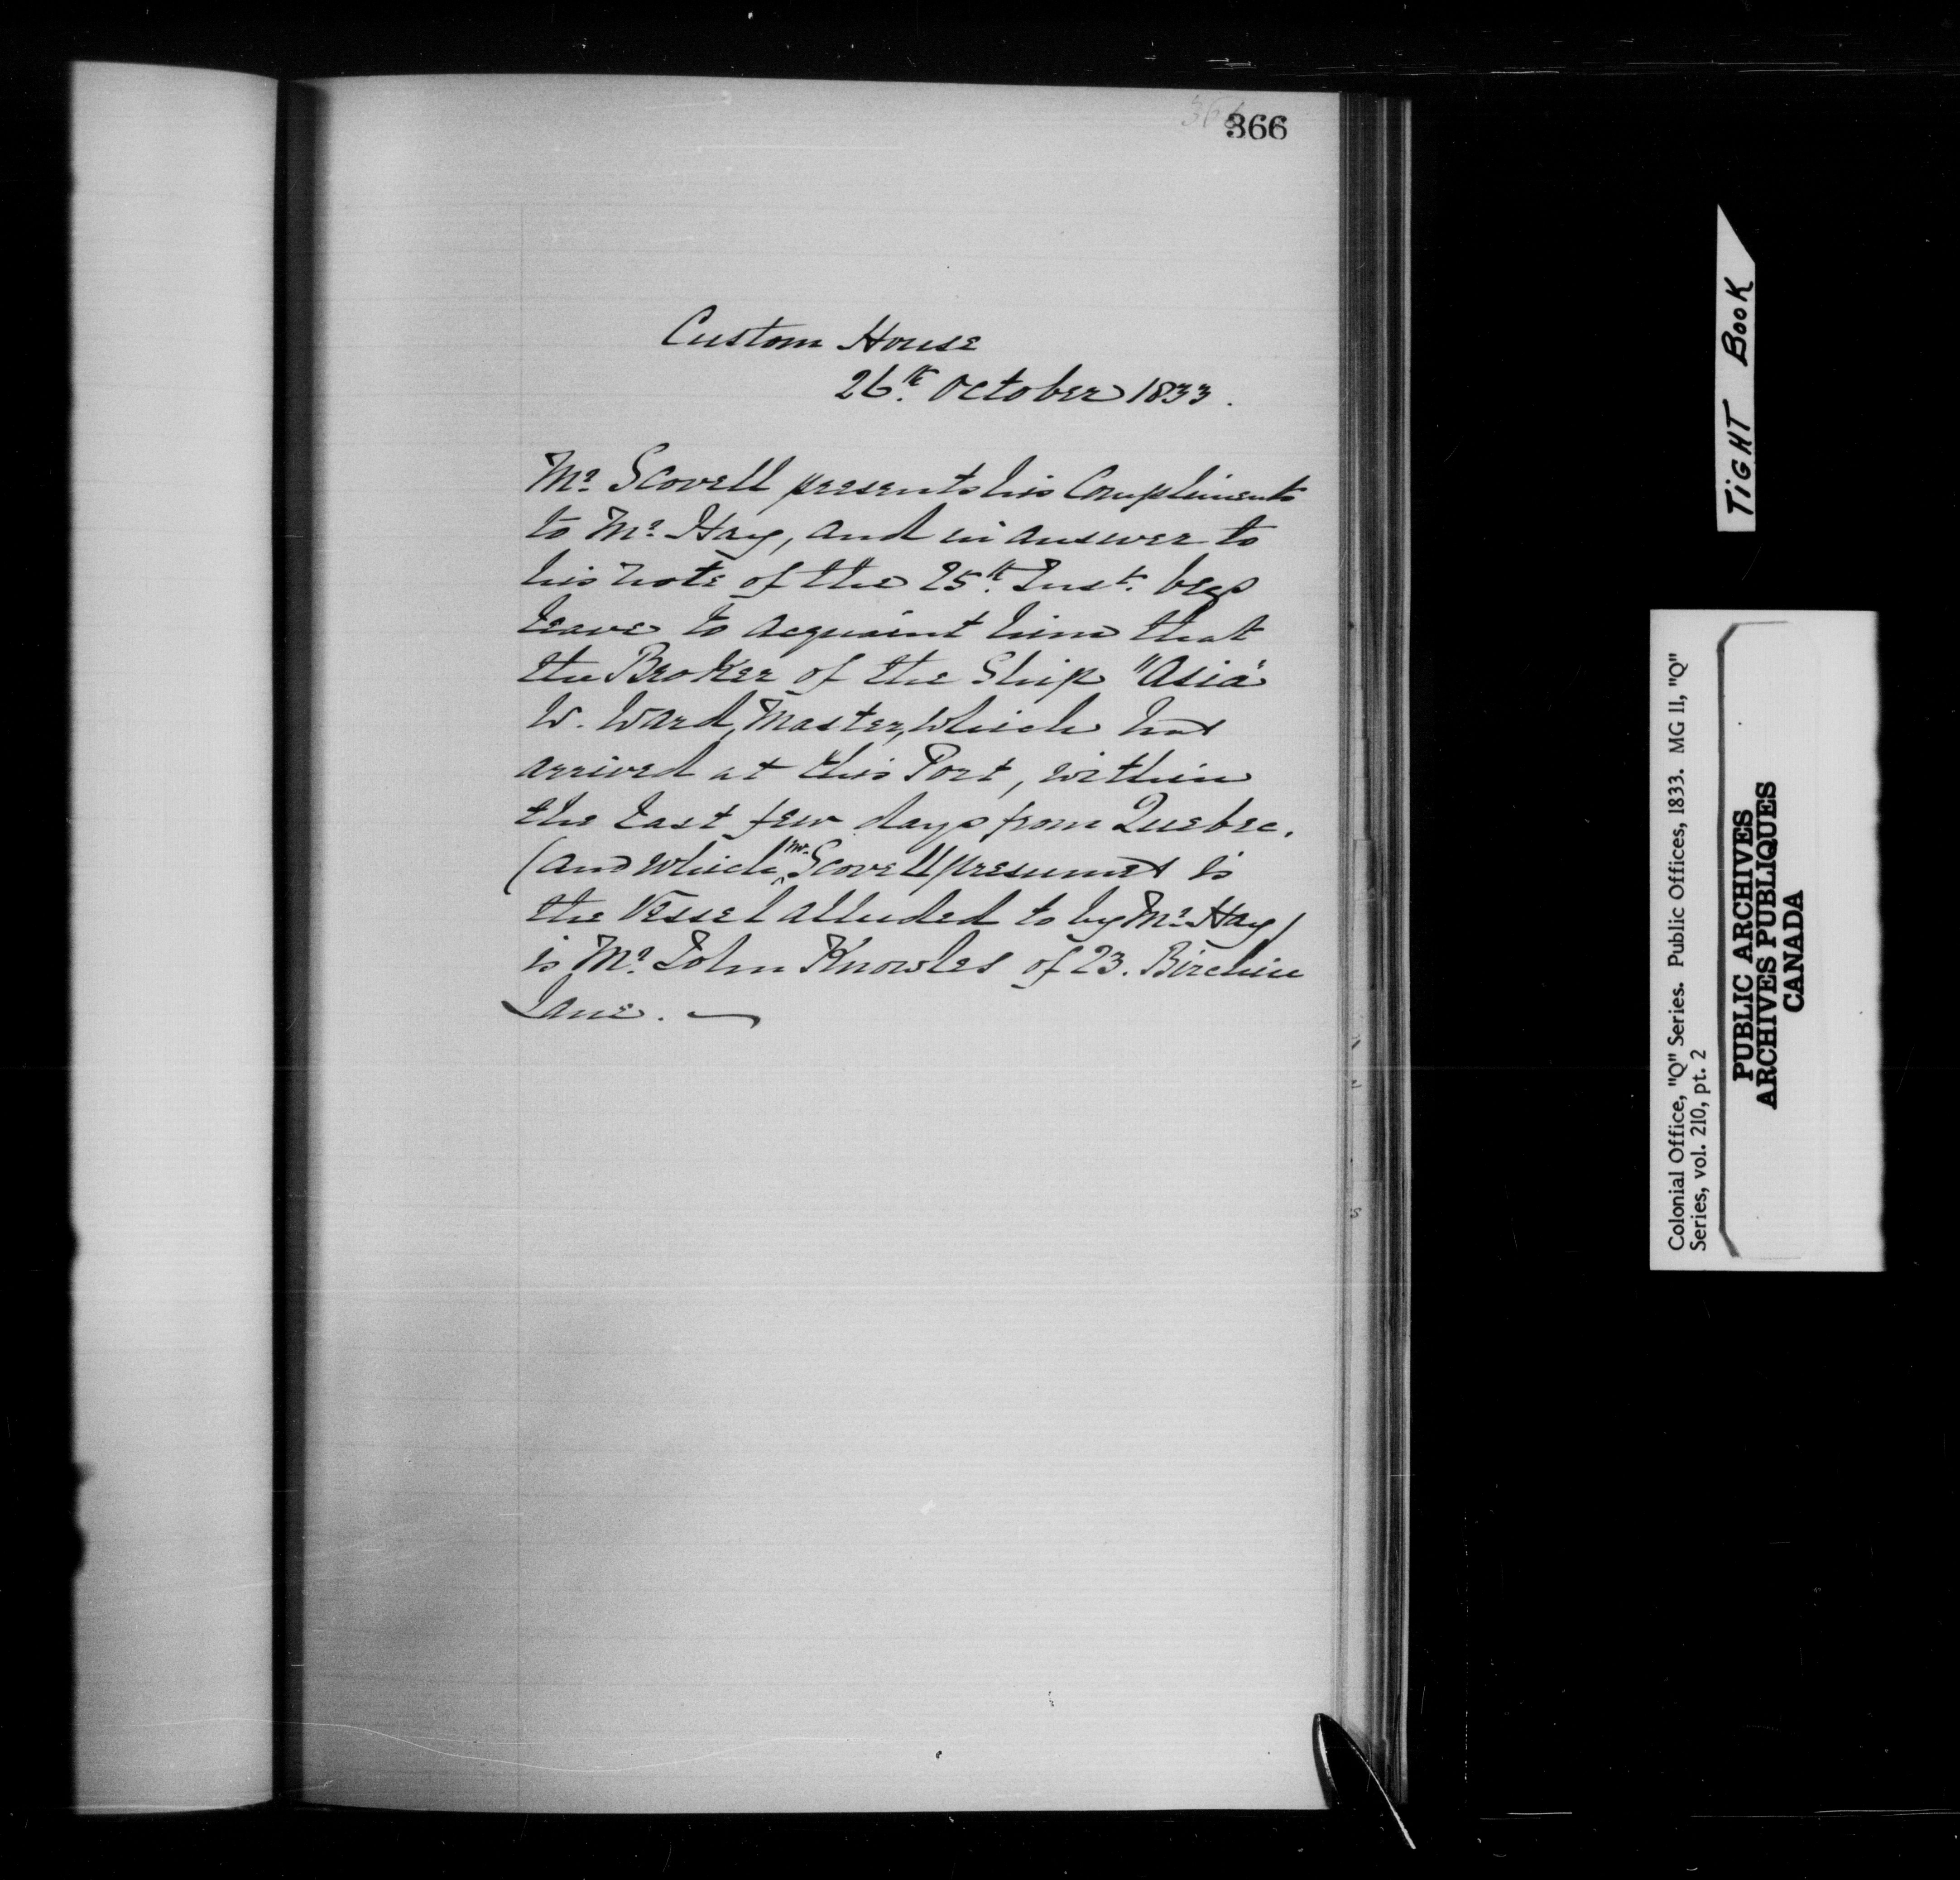 366
366
Custom House
26th. October 1833.
Mr. Scovell presents his Compliments
to Mr. Hay, and in answer to
his note of the 25th. Inst. begs
leave to acquaint him that
the Broker of the Ship "Asia"
W. Ward, Master, which has
arrived at this Port, within
the last few days from Quebec,
(and which Mr. Scovell presumes is
the Vessel alluded to by Mr. Hay)
is Mr. John Knowles of 23. Birchin
Lane. —
TIGHT BOOK
Colonial Office, "Q" Series. Public Offices, 1833. MG 11, "Q"
Series, vol. 210, pt. 2
PUBLIC ARCHIVES
ARCHIVES PUBLIQUES
CANADA